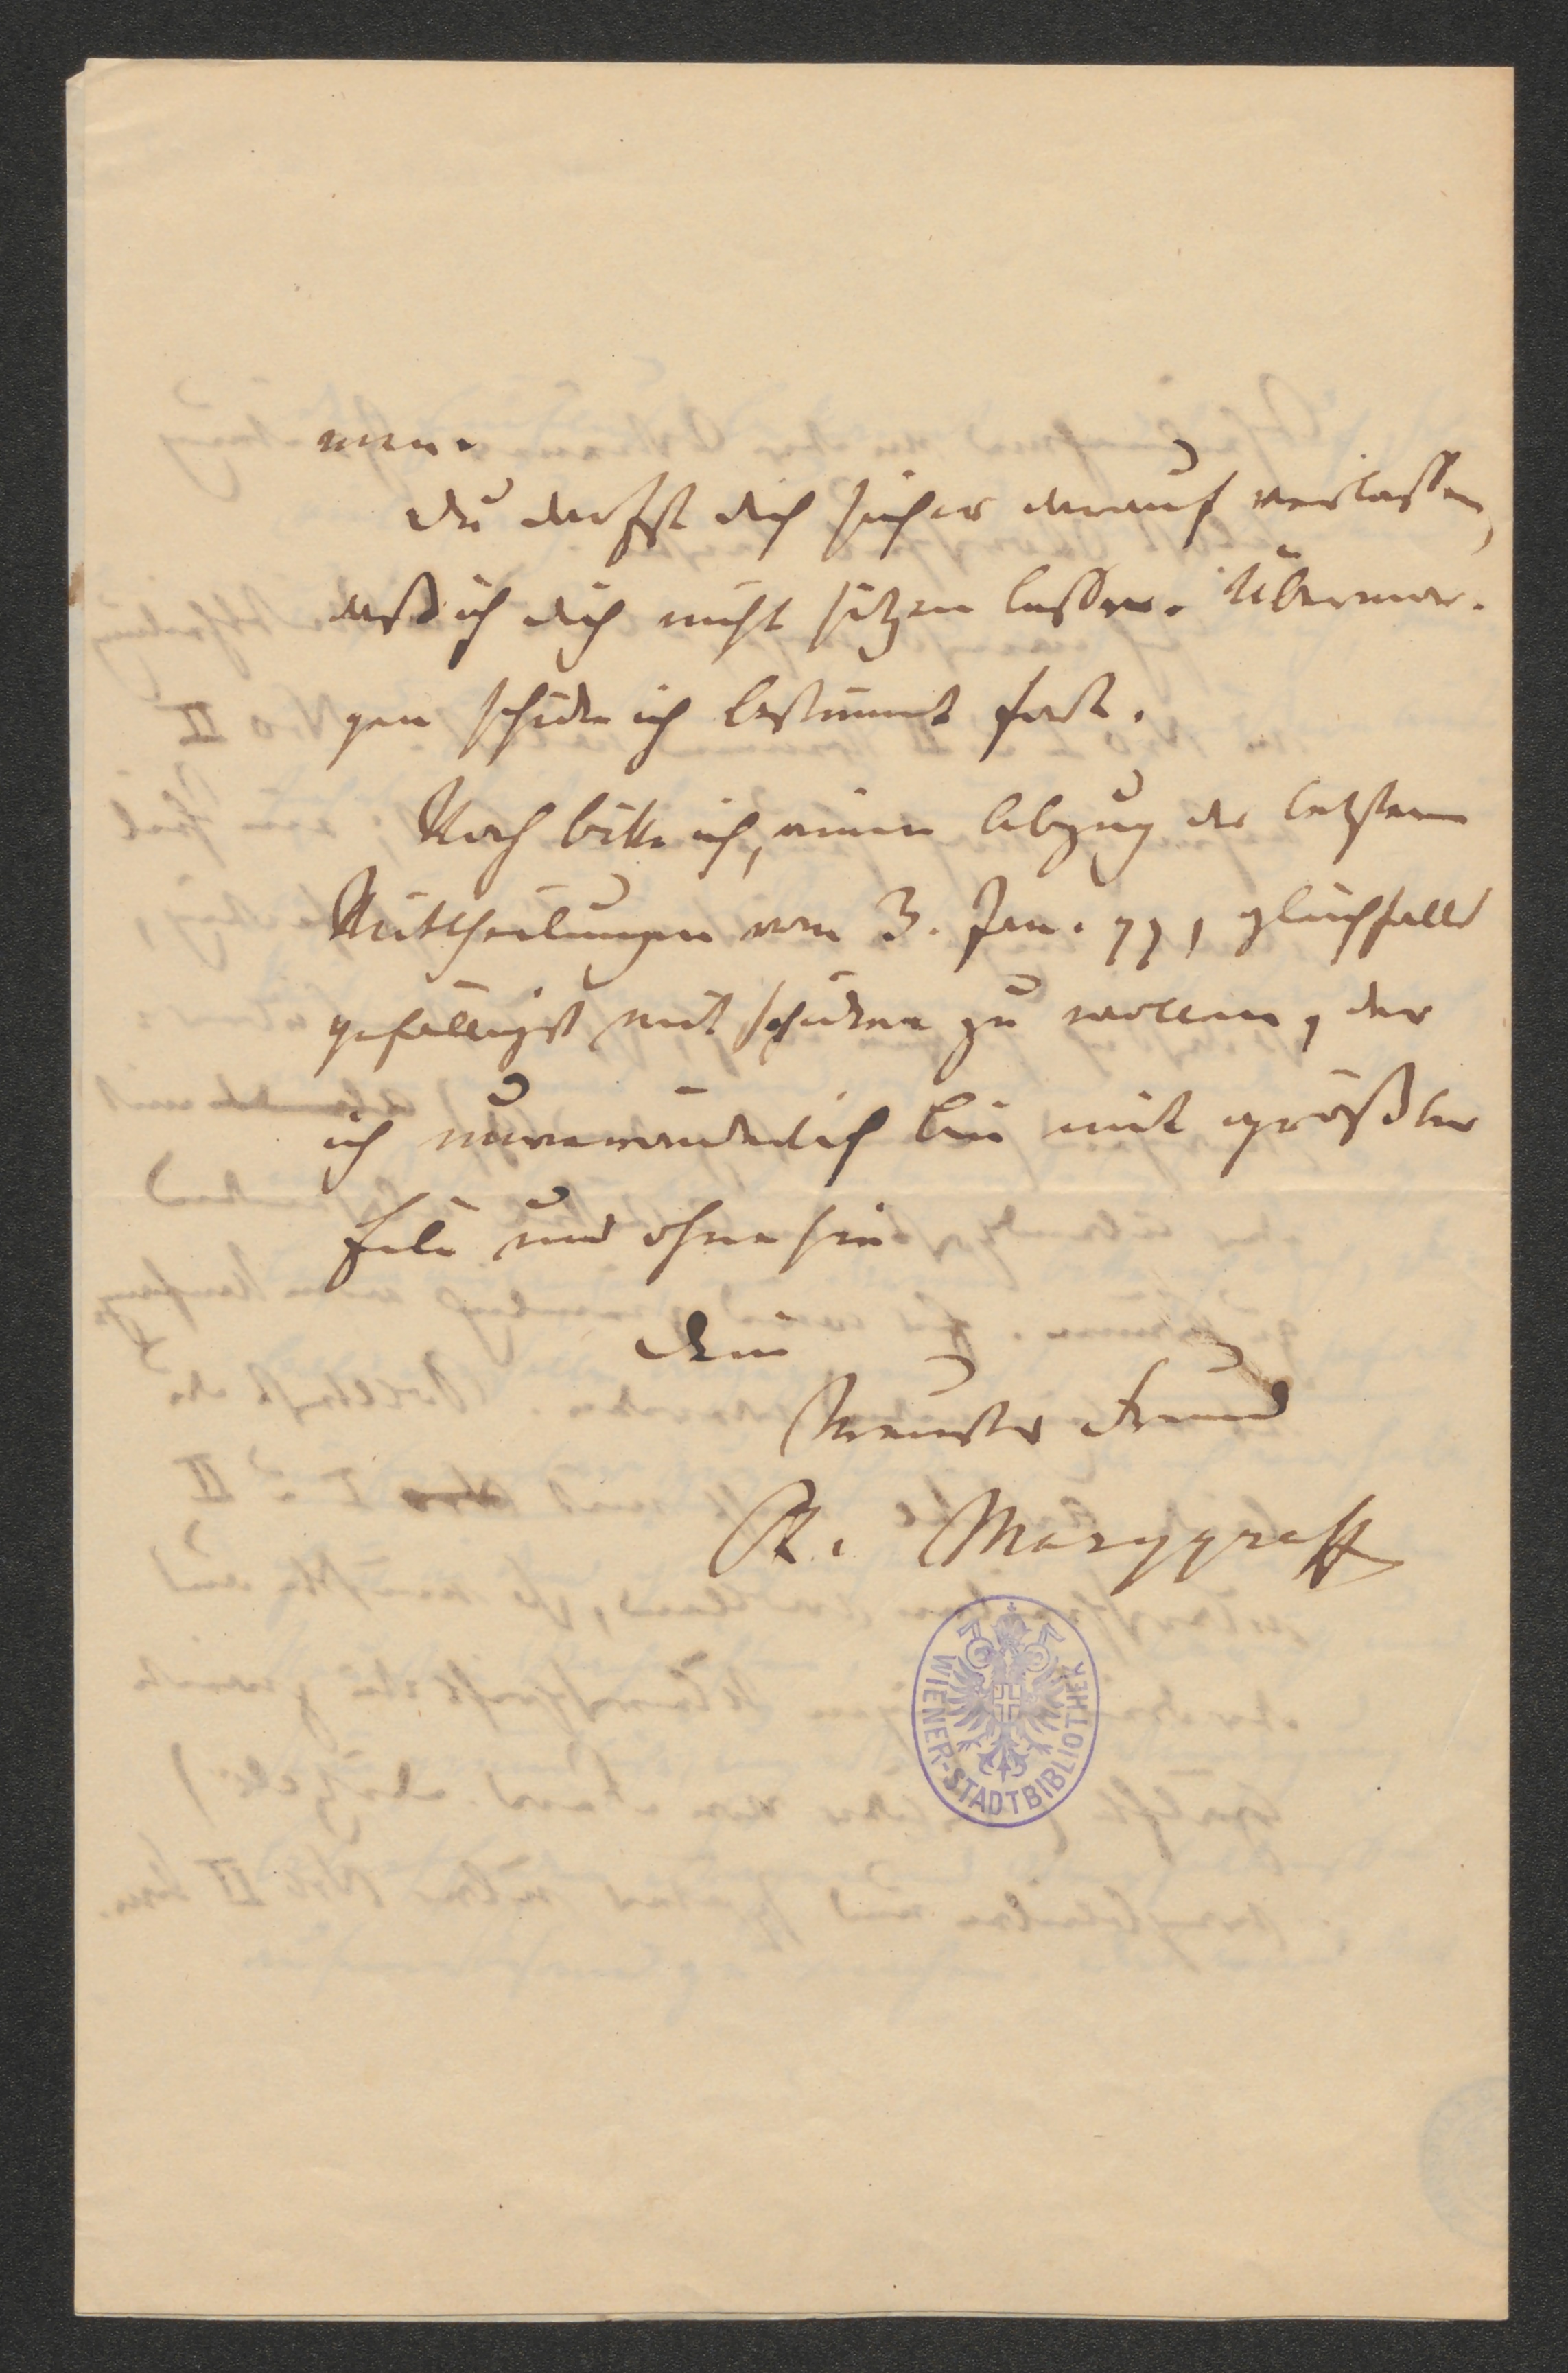 men.
Du darfst dich sicher darauf verlassen,
daß ich dich nicht sitzen lasse. Übermor-
gen schicke ich bestimmt fort.
Noch bitte ich, einen Abzug der letztern
Mittheilungen vom 3. Jan. gleichfalls
gefälligst mit schicken zu wollen, der
ich unveränderlich bin mit größter
Eile und ohnehin
Dein
treuster Freund
R. Marggraff
WIENER-STADTBIBLIOTHEK